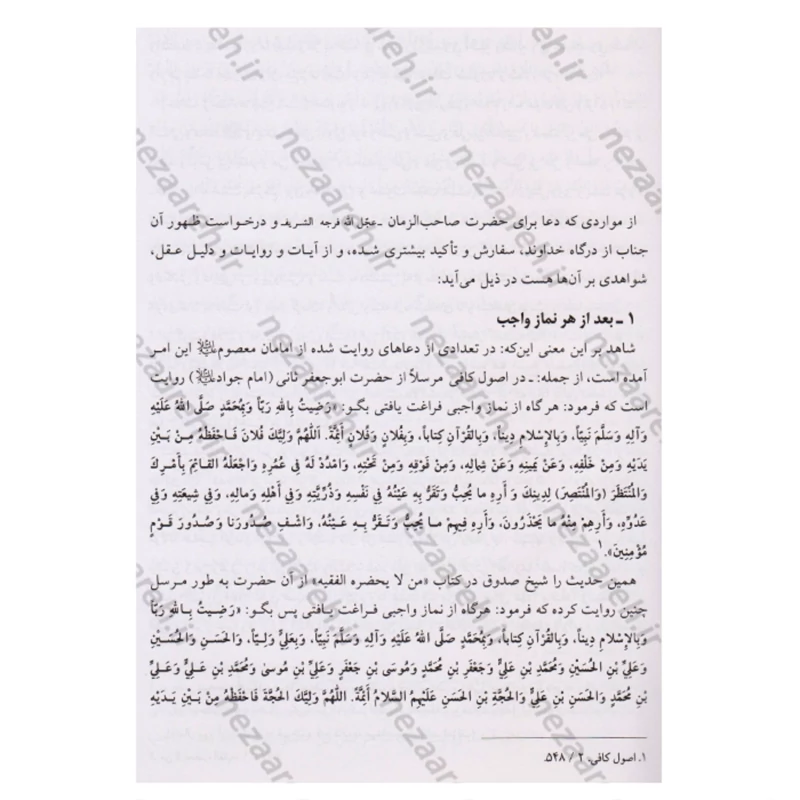 از مواردی که دعا برای حضرت صاحب‌الزمان ـ عجّل الله فرجه الشریف و درخواست ظهور آن
جناب از درگاه خداوند، سفارش و تأکید بیشتری شده، و از آیات و روایات و دلیل عقل،
شواهدی بر آن‌ها هست در ذیل می‌آید:
۱ ـ بعد از هر نماز واجب
شاهد بر این معنی این‌که: در تعدادی از دعاهای روایت شده از امامان معصوم این امر
آمده است، از جمله: ـ در اصول کافی مرسلاً از حضرت ابوجعفر ثانی (امام جواد) روایت
است که فرمود: هر گاه از نماز واجبی فراغت یافتی بگو: «رَضِیتُ بِاللهِ رَبّاً وَبِمُحَمَّدٍ صَلَّی اللهُ عَلَیْهِ
وَآلِهِ وَسَلَّمَ نَبِیّاً، وَبِالإسْلامِ دِیناً، وَبِالْقُرْآنِ کِتاباً، وَبِفُلانٍ وَفُلانٍ أئِمَّةً. اَللّهُمَّ وَلِیُّکَ فُلانٌ فَاحْفَظْهُ مِنْ بَیْنِ
یَدَیْهِ وَمِنْ خَلْفِهِ، وَعَنْ یَمِینِهِ وَعَنْ شِمالِهِ، وَمِنْ فَوْقِهِ وَمِنْ تَحْتِهِ، وَامْدُدْ لَهُ فِی عُمُرِهِ وَاجْعَلْهُ القائِمَ بِأَمْرِکَ
وَالْمُنْتَظَرَ (وَالمُنْتَصِرَ) لِدِینِکَ وَ أَرِهِ ما یُحِبُّ وَتَقَرُّ بِهِ عَیْنُهُ فِی نَفْسِهِ وَذُرِّیَّتِهِ وَفِی أَهْلِهِ وَمالِهِ، وَفِی شِیعَتِهِ وَفِی
عَدُوِّهِ، وَأَرِهِمْ مِنْهُ ما یَحْذَرُونَ، وَأَرِهِ فِیهِمْ ما یُحِبُّ وَتَقَرُّ بِهِ عَیْنُهُ، وَاشْفِ صُدُورَنا وَصُدُورَ قَوْمٍ
مُؤْمِنِینَ».۱
همین حدیث را شیخ صدوق در کتاب «من لا یحضره الفقیه» از آن حضرت به طور مرسل
چنین روایت کرده که فرمود: هرگاه از نماز واجبی فراغت یافتی پس بگو: «رَضِیتُ بِاللهِ رَبّاً
وَبِالإسْلامِ دِیناً، وَبِالقُرْآنِ کِتاباً، وَبِمُحَمَّدٍ صَلَّی اللهُ عَلَیْهِ وَآلِهِ وَسَلَّمَ نَبِیّاً، وَبِعَلِیٍّ وَلِیّاً، وَالحَسَنِ وَالْحُسَیْنِ
وَعَلِیِّ بْنِ الحُسَیْنِ وَمُحَمَّدِ بْنِ عَلِیٍّ وَجَعْفَرِ بْنِ مُحَمَّدٍ وَمُوسَی بْنِ جَعْفَرٍ وَعَلِیِّ بْنِ مُوسیٰ وَمُحَمَّدِ بْنِ عَلِیٍّ وَعَلِیِّ
بْنِ مُحَمَّدٍ وَالحَسَنِ بْنِ عَلِیٍّ وَالحُجَّةِ بْنِ الحَسَنِ عَلَیْهِمُ السَّلامُ أَئِمَّةً. اللّهُمَّ وَلِیُّکَ الحُجَّةُ فَاحْفَظْهُ مِنْ بَیْنِ یَدَیْهِ
۱. اصول کافی، ۲ / ۵۴۸.
nezaareh.ir